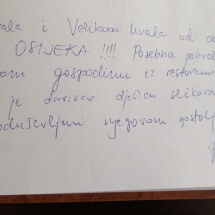 ala i Velikooo hvala od
OSIJEKA !!!! Posebna pohval
gospodinu iz restorana
je darivao dječicu slikovn
oduševljeni njegovom gostolj